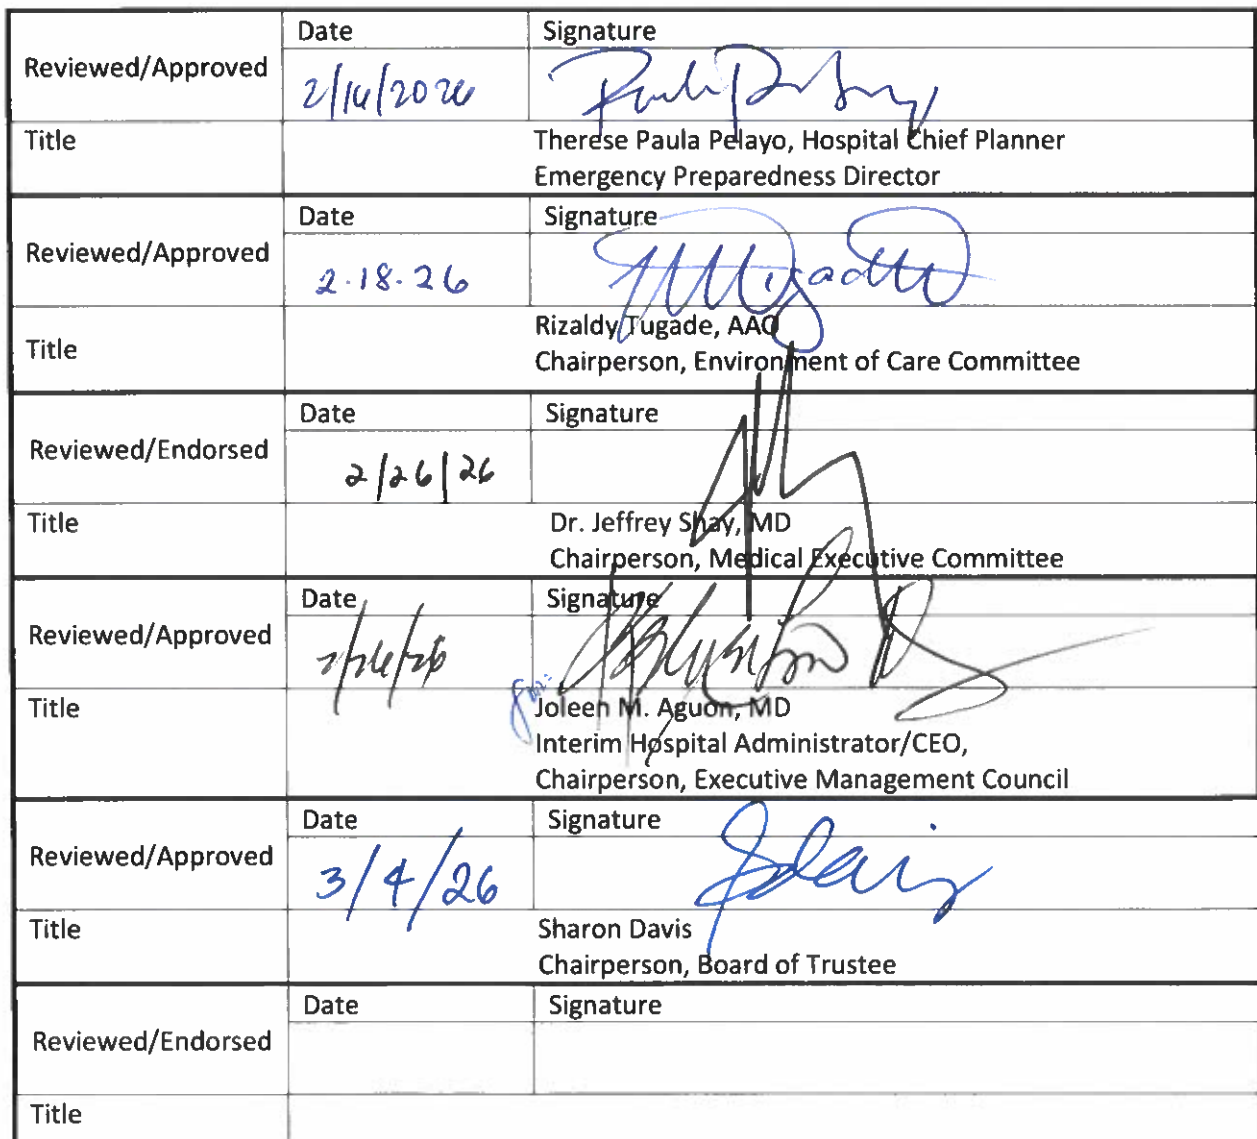 Date Signature
Reviewed/Approved
Title
Therese Paula Pelayo, Hospital Chief Planner
Emergency Preparedness Director
Date Signature
Reviewed/Approved
2.18.26
Title
Rizaldy Tugade, AAO
Chairperson, Environment of Care Committee
Date Signature
Reviewed/Endorsed
2/26/26
Title
Dr. Jeffrey Shay, MD
Chairperson, Medical Executive Committee
Date Signature
Reviewed/Approved
Title
Joleen M. Aguon, MD
Interim Hospital Administrator/CEO,
Chairperson, Executive Management Council
Date Signature
Reviewed/Approved
3/4/26
Title
Sharon Davis
Chairperson, Board of Trustee
Date Signature
Reviewed/Endorsed
Title